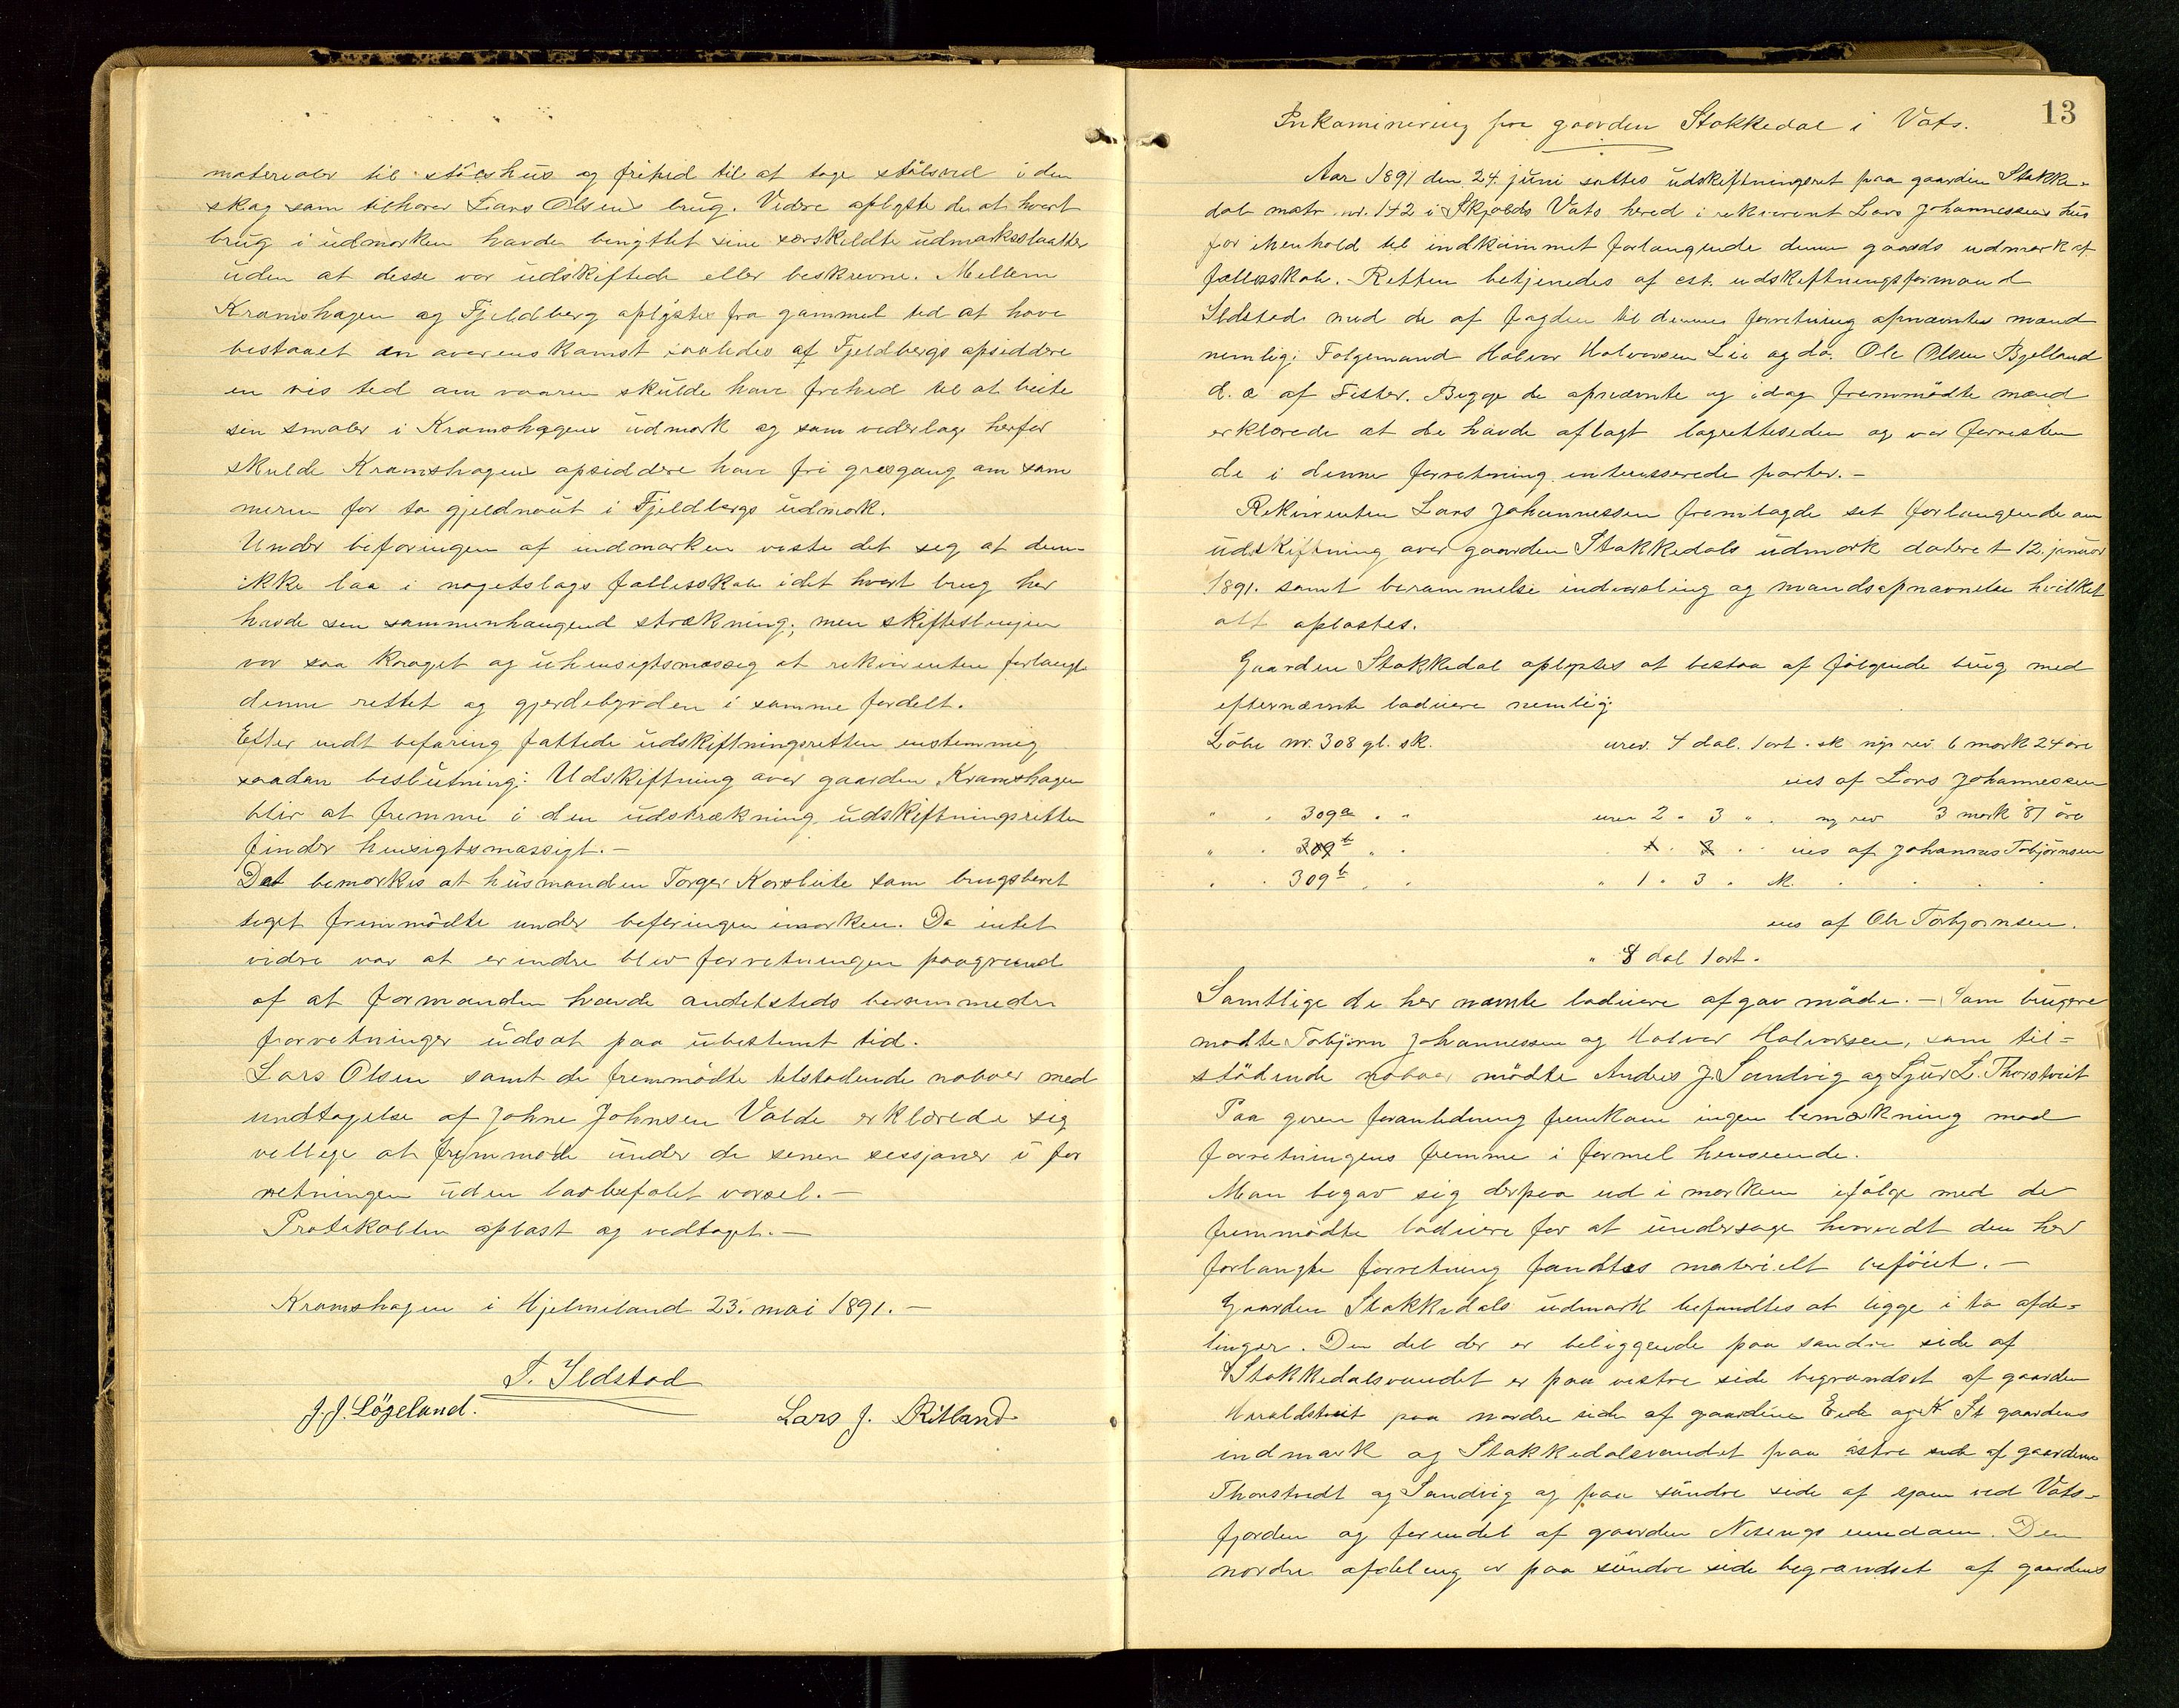 materialer til stölshus og frihed til at tage stölsved i den
skog som tilhorer Lars Olsens brug. Videre oplyste de at hvert
brug i udmarken havde benyttet sine serskeldte udmarksslaatter
uden at desse var udskiftede eller beskrevne. Mellem
Kramshagen og Fjeldberg oplystes fra gammel tid at have
bestaaet en averenskomst saaledes af Fjeldbergs opsiddere
en vis tid om vaaren skulde have frihed til at beite
sin smaler i Kramshagens udmark og som vederlag herfor
skulde Kramshagens opsiddere have fri gresgang om som
meren for to gjeldnaut i Fjeldbergs udmark.
Under beforingen af indmarken viste det seg at denne
ikke laa i nogetslags fallesskab idet hvert brug her
havde sen sammenhangend strækning; men skiftestenjen
var saa kroget og uhensigtsmassig at rekvirenten forlangte
denne rettet og gjerdebyrden i samme fordelt.
Efter endt befaring fattede udskiftningsretten enstemmig
saadan beslutning: Udskiftning over gaarden Kramshagen
blir at fremme i den udstrækning udskiftningsretten
finder hensigtsmassigt. —
Det bemerkes at husmanden Torger Korsleite som brugsberet
tiget fremmödte under beferingen i marken. Da intet
vidre var at erindre blev forretningen paagrund
af at formanden havde andetsteds berammede
forretninger udsat paa ubestemt tid.
Lars Olsen samt de fremmödte tilstodende naboer med
undtagelse af Johne Johnsen Valde erklærede sig
vellige at fremmode under de senere sessjoner i for
retningen uden lovbefalet varsel. —
Protokollen oplast og vedtaget. —
Kramshagen i Hjelmeland 23. mai 1891. —
T. Ildstad
J. J. Lögeland. Lars J. Ritland
13
Inkaminering paa gaarden Stakkedal i Vats.
Aar 1891 den 24. juni sattes udskiftningsret paa gaarden Stakke-
dal matr. nr. 142 i Skjolds Vats hered i rekvirent Lars Johannessens hus
for ihenhold til indkommet forlangende denne gaards udmark af
fællesskab. Retten betjenedes af est. udskiftningsformand
Ildstad med de af fogden til denne forretning opnævnte mænd
nemlig: Folgemand Halvor Halvorsen Lie og do. Ole Olsen Bjelland
d. æ af Fister. Begge de opnævnte og idag fremmödte mænd
erklærede at de havde aflagt lagretteseden og var forresten
de i denne forretning interesserede parter. —
Rekvirenten Lars Johannessen fremlagde set forlangende om
udskiftning over gaarden Stakkedals udmark dateret 12. januar
1891. samt berammelse indvarsling og mandsopnavnelse hvilket
alt oplastes.
Gaarden Stakkedal oplystes at bestaa af følgende brug med
efternævnte lodeiere nemlig:
Löbe nr. 308 gl. sk. urev. 4 dal. 1 ort. sk ny rev. 6 mark 24 öre
eies af Lars Johannessen
" " 309a " " urev 2 " 3 " " ny rev 3 mark 87 öre
" " 309b " " 1 " 3 " " eies af Johannes Tobjørnsen
" " 309b " " " 1 " 3 " sk.
eies af Ole Torbjornsen.
" 8 dal 1 ort.
Samtlige de her nævnte lodeiere afgav möde. — Som brugere
modte Tobjørn Johannessen og Halvor Halvorsen, som til-
stödende naboer mödte Andres J. Sandvig og Sjur L. Thorstveit
Paa given foranledning fremkom ingen bemærkning mod
forretningens fremme i formel henseende.
Man begav sig derpaa ud i marken ifölge med de
fremmödte lodeiere for at undersoge hvorvidt den her
forlangte forretning fandtes materielt beföiet. —
Gaarden Stakkedals udmark befandtes at ligge i to afde-
linger. Den del der er beliggende paa sondre side af
Stakkedalsvandet er paa vestre side begrandset af gaarden
Haraldstveit paa nordre side af gaardene Eide og St gaardens
indmark og Stakkedalsvandet paa östre side af gaardene
Thorstvedt og Sandvig og paa söndre side af sjøen ved Vats-
fjorden og forendel af gaarden Nesengs eiendom. Den
nordre afdeleng er paa söndre side begrandset af gaardens